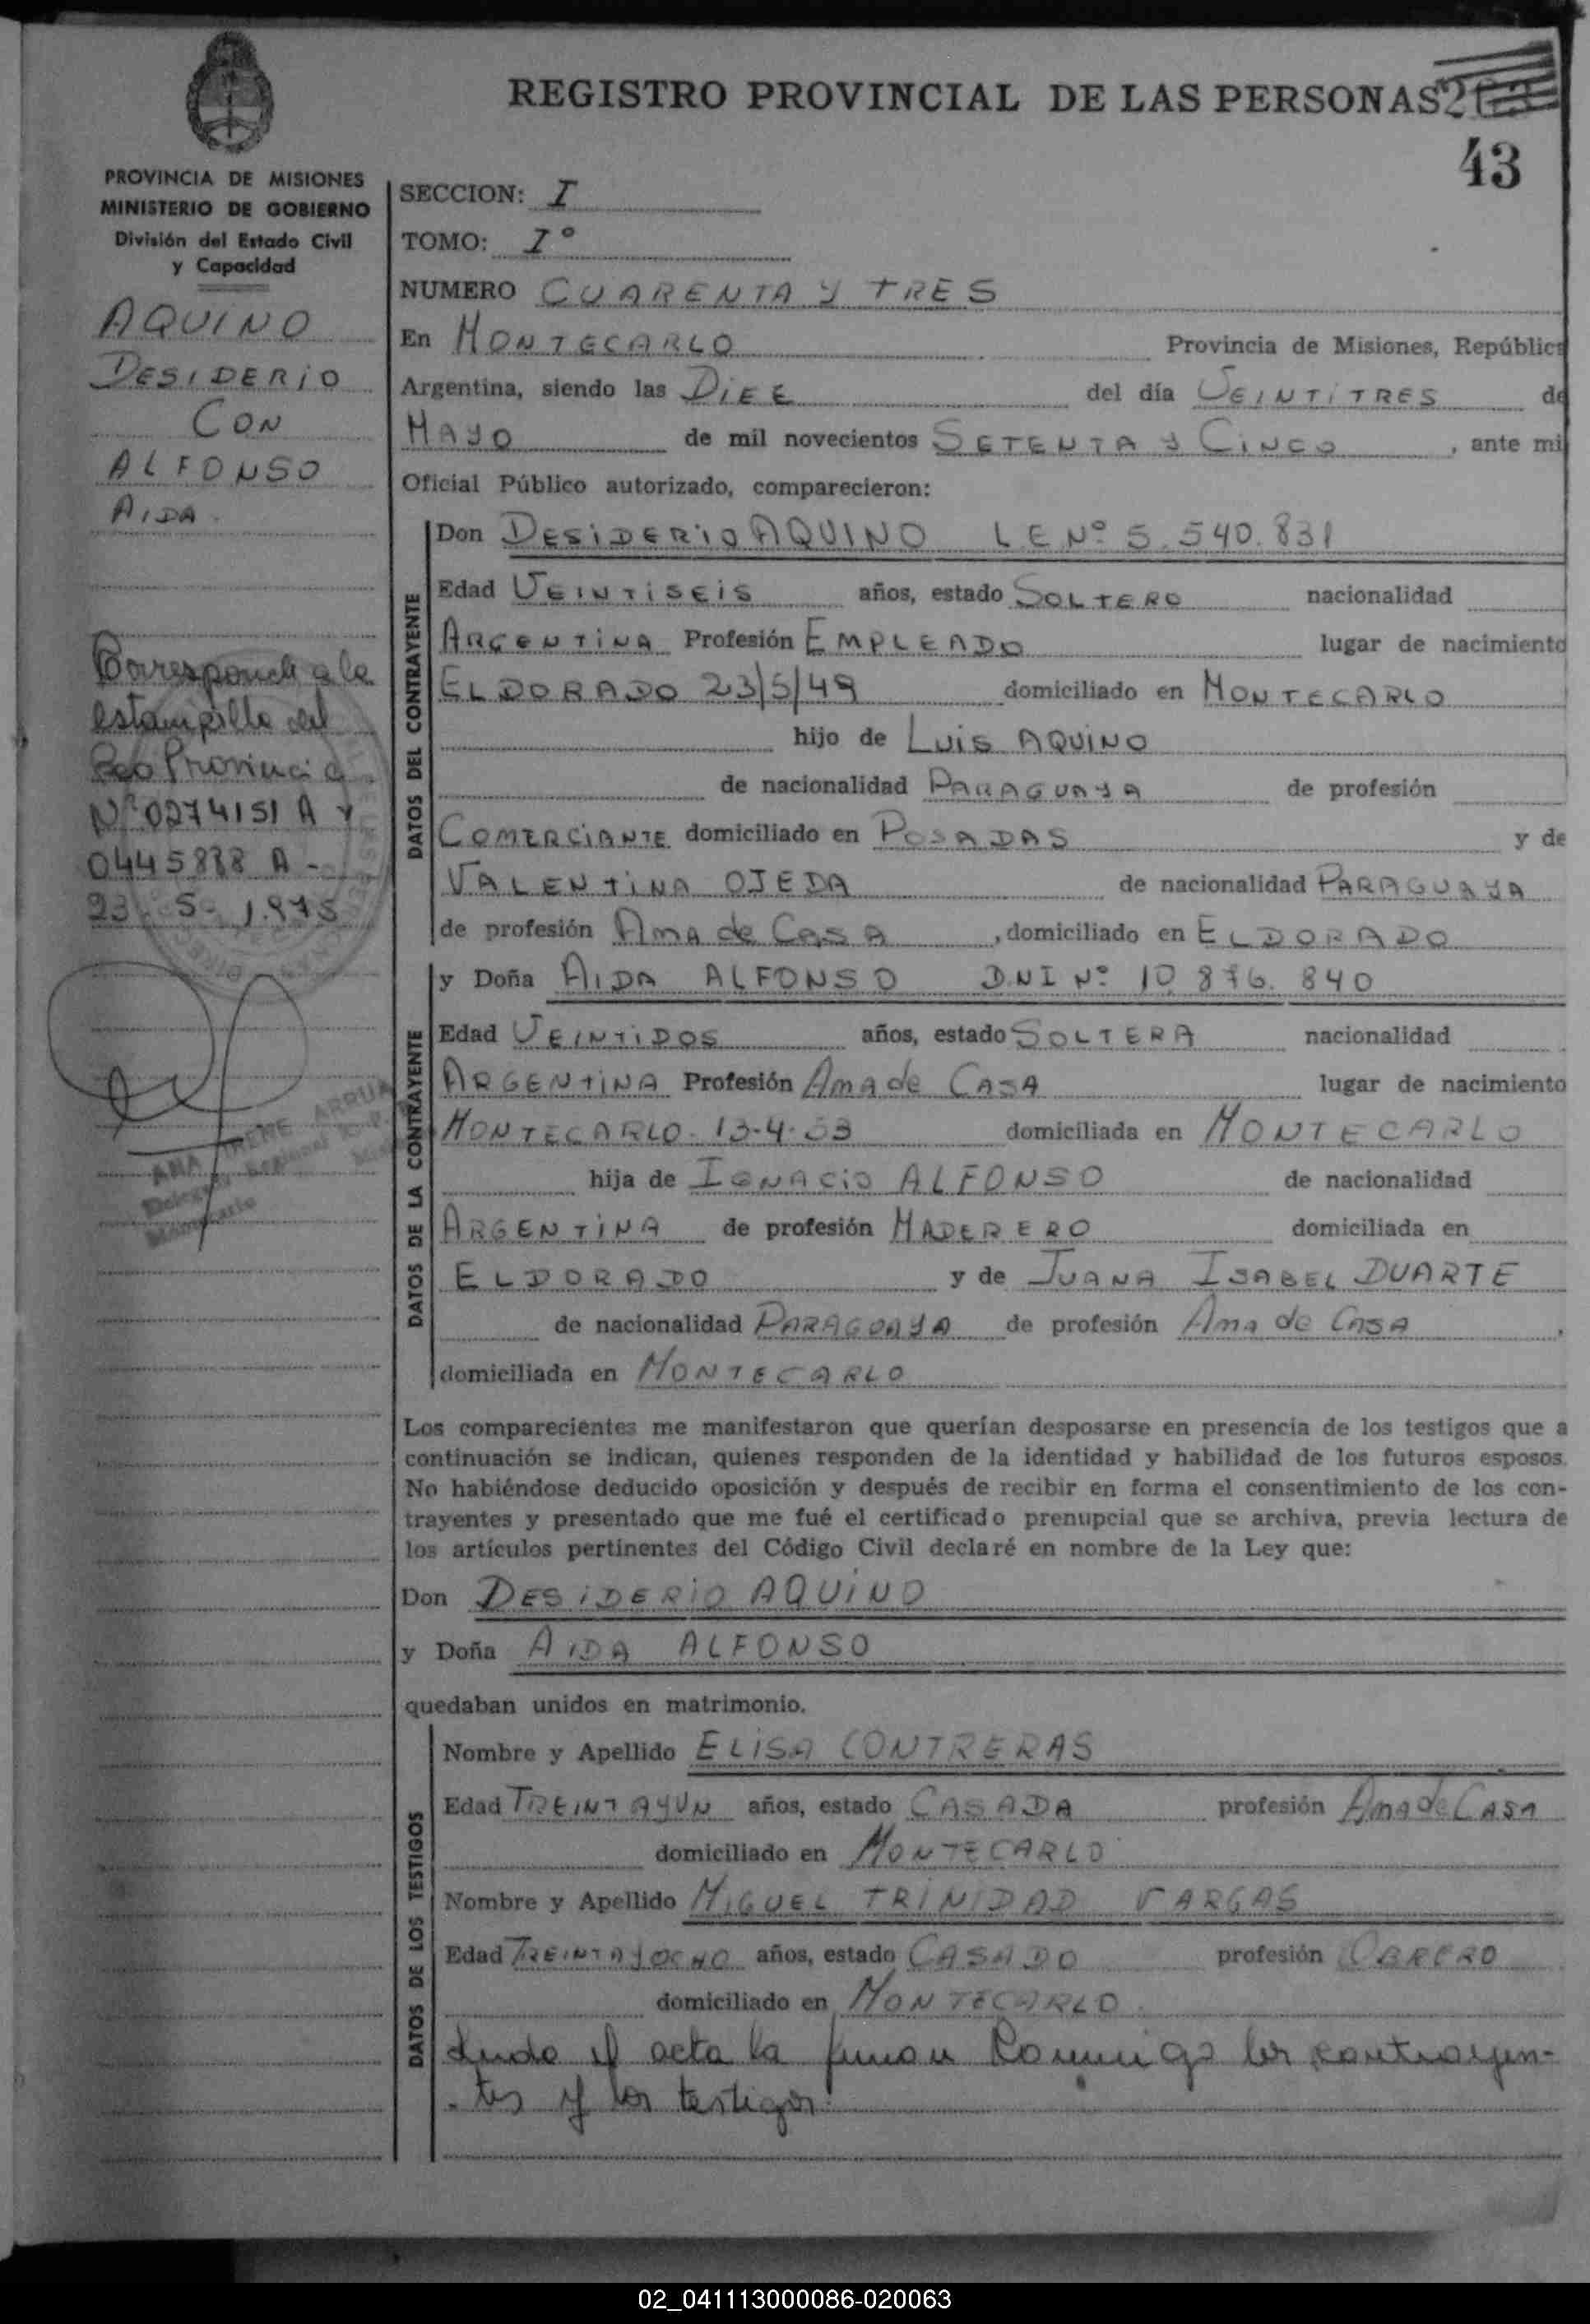 REGISTRO PROVINCIAL DE LAS PERSONAS
43
PROVINCIA DE MISIONES
MINISTERIO DE GOBIERNO
División del Estado Civil
y Capacidad
AQUINO
DESIDERIO
CON
ALFONSO
AIDA
Corresponde a la
estampilla del
Provincia
Nº 0274151 A y
0445888 A -
23 - 5 - 1.975
ANA IRENE ARRUA
SECCION: I
TOMO: Iº
NUMERO CUARENTA Y TRES
En MONTECARLO Provincia de Misiones, República
Argentina, siendo las DIEZ del día VEINTITRES de
MAYO de mil novecientos SETENTA Y CINCO, ante mi
Oficial Público autorizado, comparecieron:
DATOS DEL CONTRAYENTE
Don DESIDERIO AQUINO LE Nº 5.540.831
Edad VEINTISEIS años, estado SOLTERO nacionalidad
ARGENTINA Profesión EMPLEADO lugar de nacimiento
ELDORADO 23/5/49 domiciliado en MONTECARLO
hijo de LUIS AQUINO
de nacionalidad PARAGUAYA de profesión
COMERCIANTE domiciliado en POSADAS y de
VALENTINA OJEDA de nacionalidad PARAGUAYA
de profesión Ama de Casa, domiciliado en ELDORADO
DATOS DE LA CONTRAYENTE
y Doña AIDA ALFONSO D.N.I Nº 10.876.840
Edad VEINTIDOS años, estado SOLTERA nacionalidad
ARGENTINA Profesión Ama de CASA lugar de nacimiento
MONTECARLO. 13-4-53 domiciliada en MONTECARLO
hija de IGNACIO ALFONSO de nacionalidad
ARGENTINA de profesión MADERERO domiciliada en
ELDORADO y de JUANA ISABEL DUARTE
de nacionalidad PARAGUAYA de profesión Ama de CASA,
domiciliada en MONTECARLO
Los comparecientes me manifestaron que querían desposarse en presencia de los testigos que a
continuación se indican, quienes responden de la identidad y habilidad de los futuros esposos.
No habiéndose deducido oposición y después de recibir en forma el consentimiento de los con-
trayentes y presentado que me fué el certificado prenupcial que se archiva, previa lectura de
los artículos pertinentes del Código Civil declaré en nombre de la Ley que:
Don DESIDERIO AQUINO
y Doña AIDA ALFONSO
quedaban unidos en matrimonio.
DATOS DE LOS TESTIGOS
Nombre y Apellido ELISA CONTRERAS
Edad TREINTAYUN años, estado CASADA profesión Ama de CASA
domiciliado en MONTECARLO
Nombre y Apellido MIGUEL TRINIDAD VARGAS
Edad TREINTAYOCHO años, estado CASADO profesión OBRERO
domiciliado en MONTECARLO.
Leida el acta la firman Conmigo los contrayen-
tes y los testigos.
02_041113000086-020063